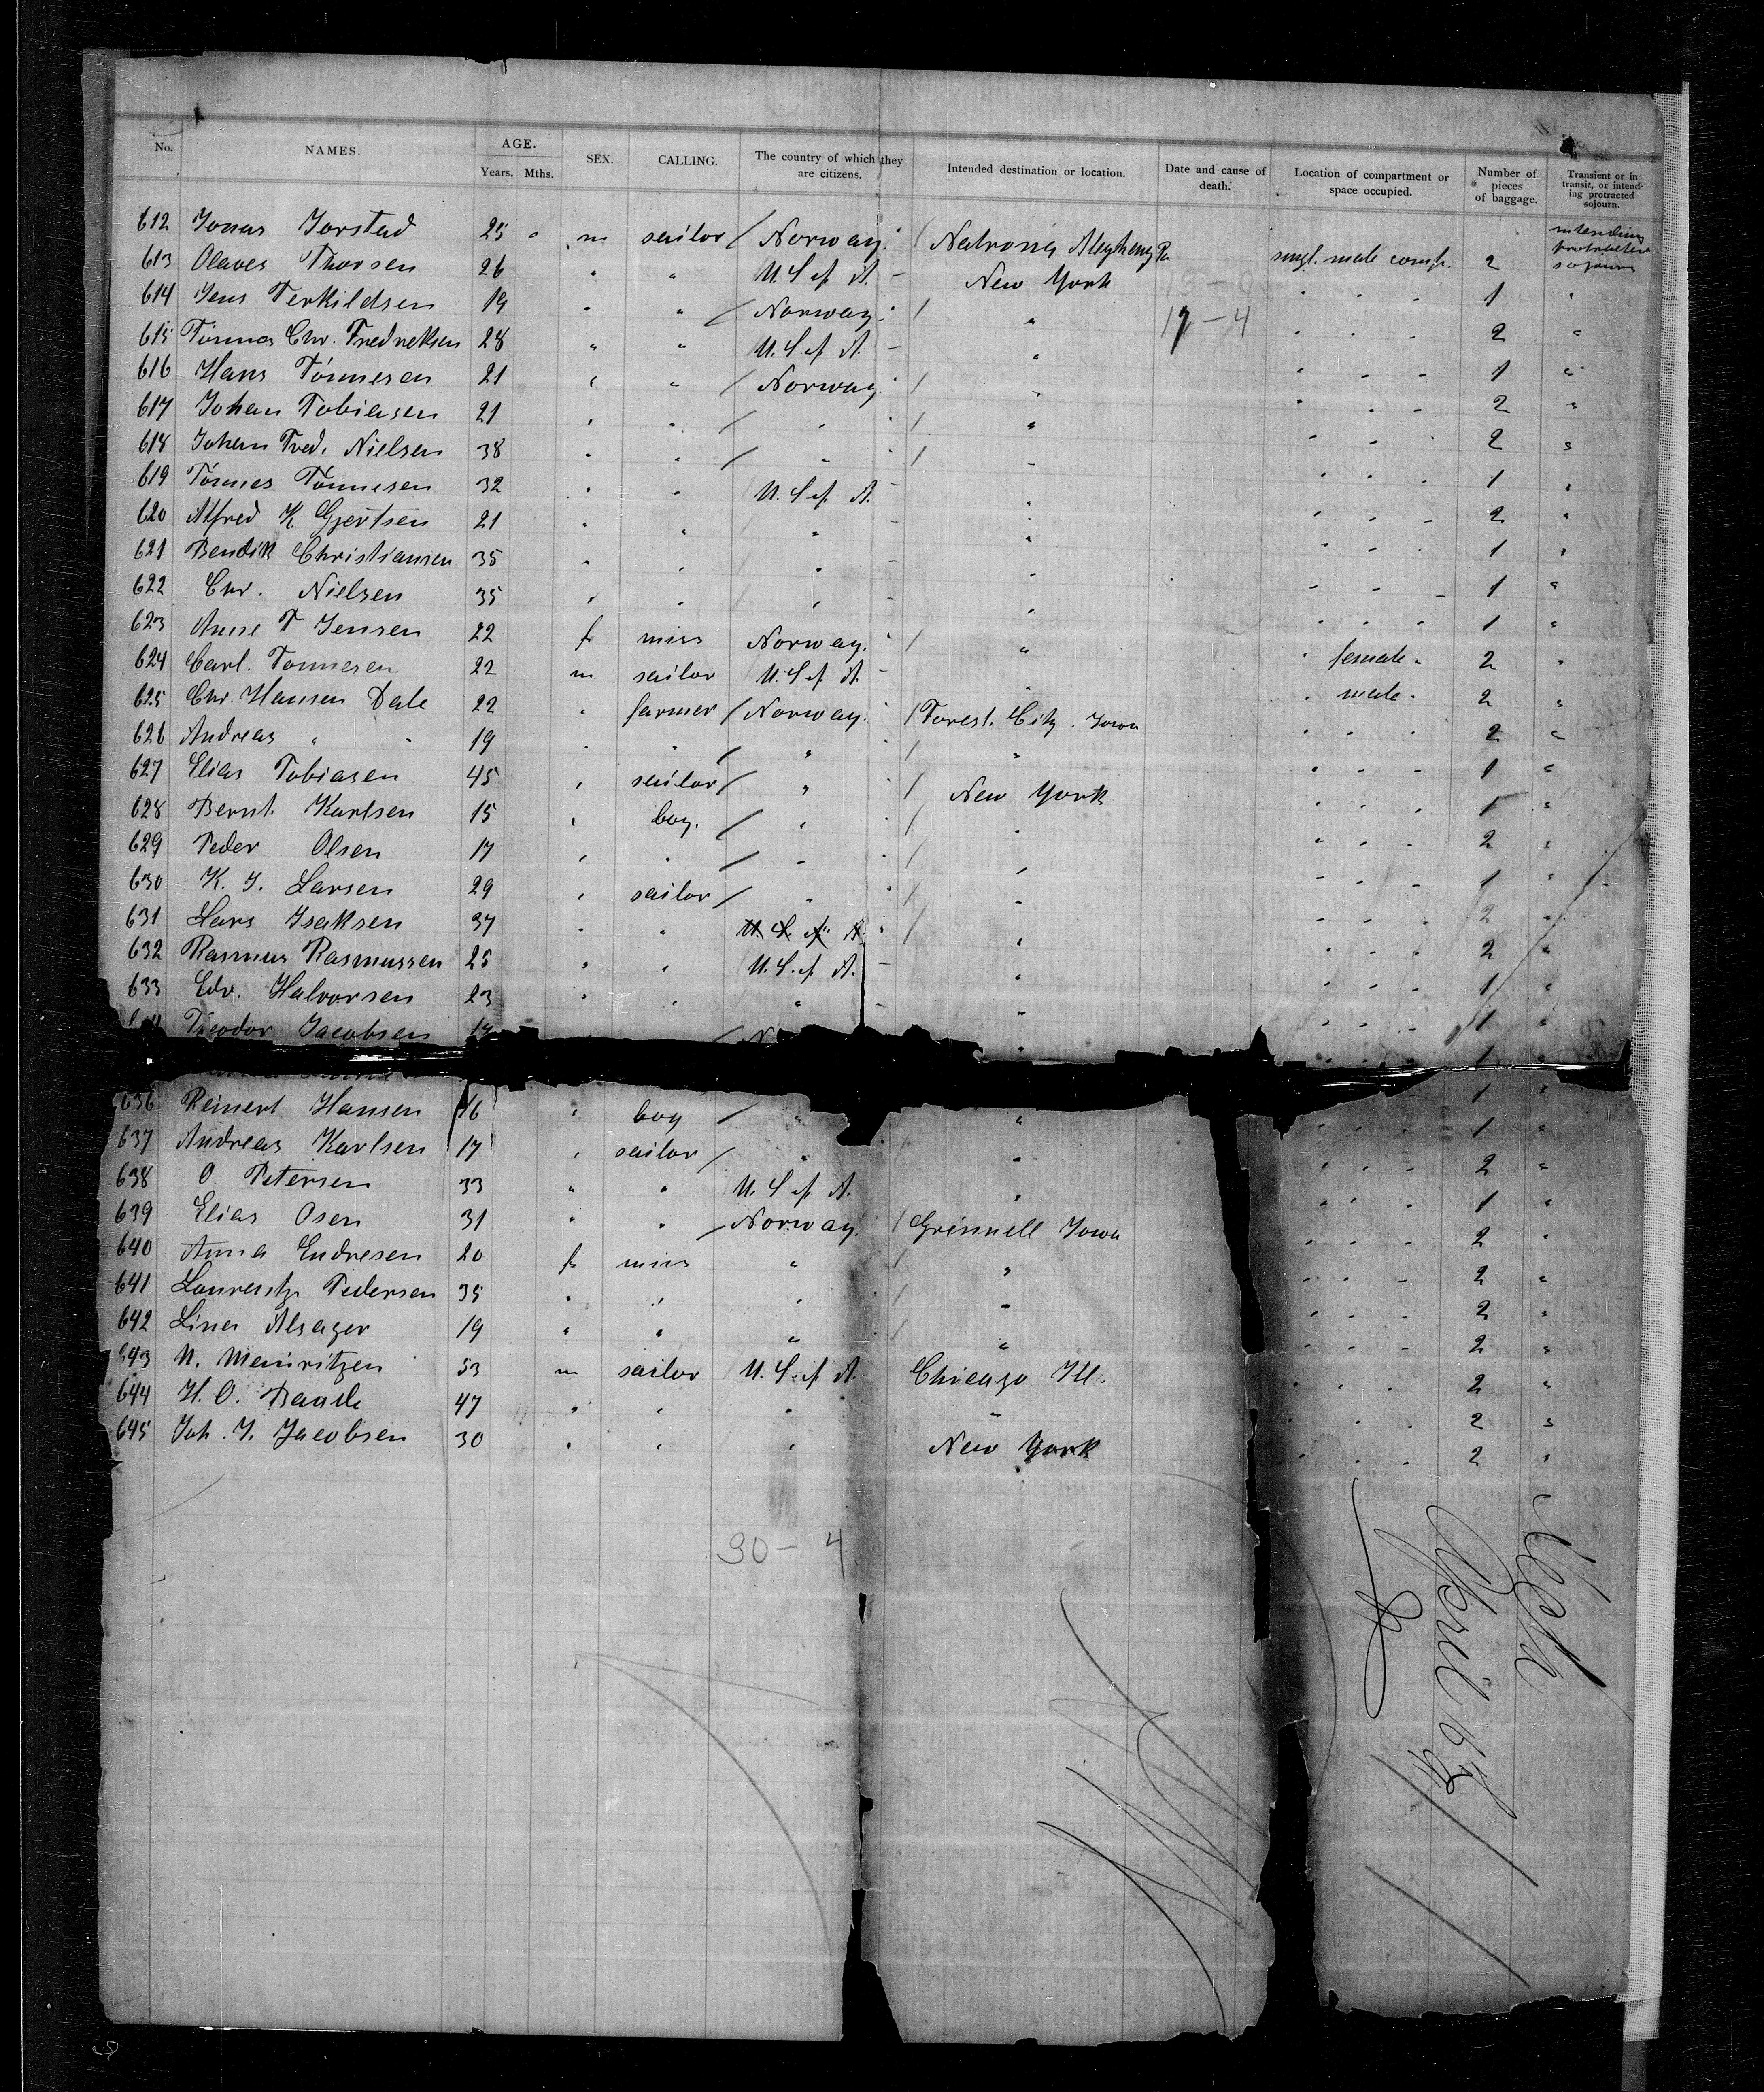 No. NAMES. AGE. Years. Mths. SEX. CALLING. The country of which they are citizens. Intended destination or location. Date and cause of death. Location of compartment or space occupied. Number of pieces of baggage. Transient or in transit, or intending protracted sojourn.
612 Jonas Jorstad 25 m sailor / Norway. / Natrona Alegheny Pa singl. male comp. 2 intending protracted sojourn
613 Olaves Thorsen 26 " " U. S. of A. - New York " " " 1 "
614 Jens Terkildsen 19 " " / Norway. / " 17-4 " " " 2 "
615 Tönnes Chr. Fredreksen 28 " " U. S. of A. - " " " " 1 "
616 Hans Tönnesen 21 " " / Norway / " " " " 2 "
617 Johan Tobiasen 21 " " / " / " " " " 2 "
618 Johan Fred. Nielsen 38 " " / " / " " " " 1 "
619 Tönnes Tönnesen 32 " " U. S. of A. - " " " " 2 "
620 Alfred K Gjertsen 21 " " " " " " " 1 "
621 Bendik Christiansen 35 " " " - " " " " 1 "
622 Chr. Nielsen 35 " " " - " " " " 1 "
623 Anne T Jensen 22 f miss Norway. / " " female " 2 "
624 Carl. Tonnesen 22 m sailor U. S. of A. - " " male " 2 "
625 Chr. Hansen Dale 22 " farmer / Norway. / Forest. City. Iowa " " " 2 "
626 Andreas " " 19 " " / " / " " " " 1 "
627 Elias Tobiasen 45 " sailor / " / New York " " " 1 "
628 Bernt. Karlsen 15 " boy. / " / " " " " 2 "
629 Peder Olsen 17 " " / " / " " " " 1 "
630 K. J. Larsen 29 " sailor / " / " " " " 2 "
631 Lars Isaksen 37 " " U. S. of A. / " " " " 2 "
632 Rasmus Rasmussen 25 " " U. S. of A. - " " " " 1 "
633 Edv. Halvorsen 23 " " " - " " " " 1 "
Theodor Jacobsen / " 1 "
636 Reinert Hansen 16 " boy / " " 1 "
637 Andreas Karlsen 17 " sailor / " / " " " " 2 "
638 O. Petersen 33 " " U. S. of A. " " " " 1 "
639 Elias Osen 31 " " / Norway. / Grinnell Iowa " " " 2 "
640 Anna Endresen 20 f miss " / " " " " 2 "
641 Laurentze Pedersen 35 " " " / " " " " 2 "
642 Lina Alsager 19 " " " / " " " " 2 "
643 53 m sailor U. S. of A. Chicago Ill. " " " 2 "
644 H. O. 47 " " " " " " " 2 "
645 Joh. J. Jacobsen 30 " " " New York " " " 2 "
30-4
April